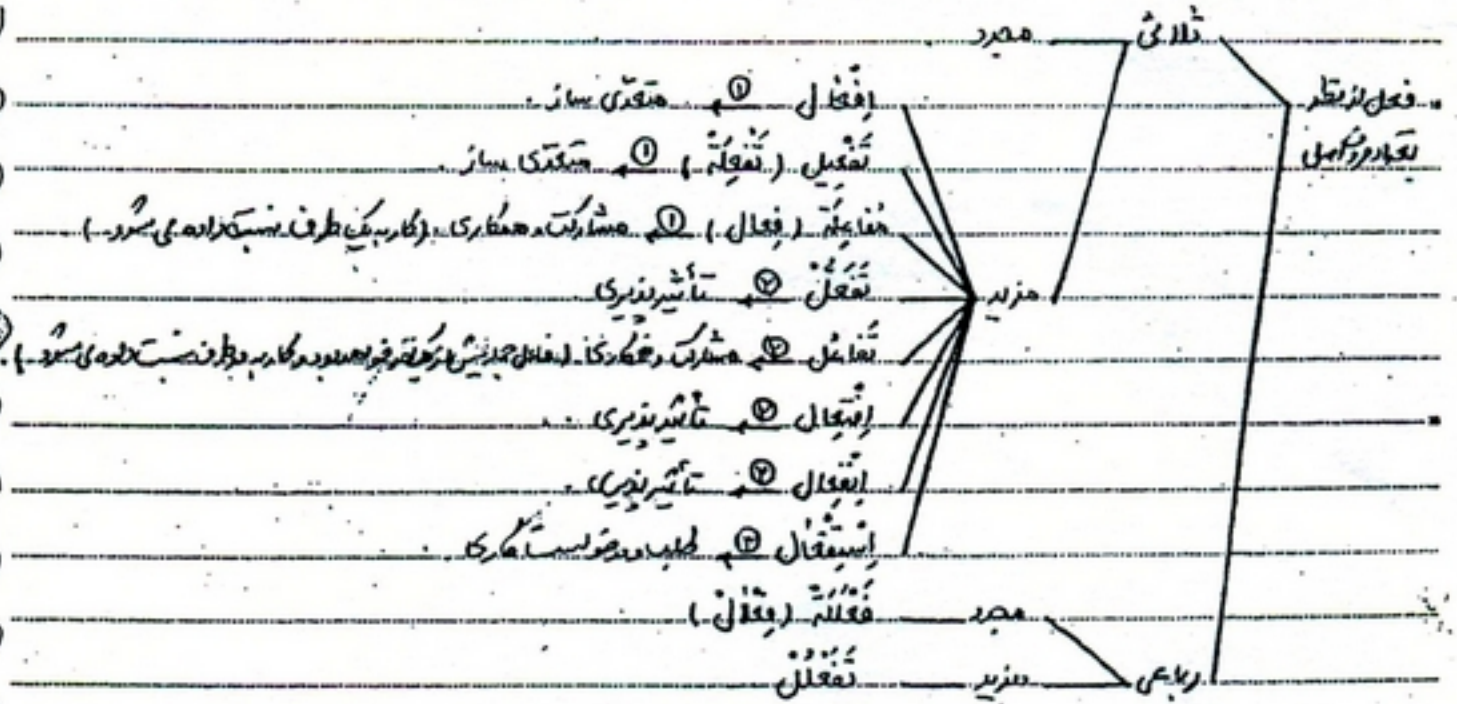 ثلاثی مجرد
فعل از نظر
تعداد حروف اصلی
اِفْعَال ① متعدّی ساز.
تَفْعِیل (تَفْعِلَة) ① متعدّی ساز.
مُفاعِلَة (فِعال) ① مشارکت و همکاری. (کار به یک طرف نسبت داده می شود)
مزید
تَفَعُّلْ ② تأثیرپذیری
تَفاعُل ② مشارکت و همکاری (فاعل جمله بیش از یک نفر خواهد بود و کار به دو طرف نسبت داده می شود).
اِفْتِعال ② تأثیرپذیری.
اِنْفِعال ② تأثیرپذیری.
اِسْتِفْعَال ③ طلب و درخواست کاری.
مجرد فَعْلَلَة (فِعْلَالْ)
رباعی مزید تَفَعْلُلْ